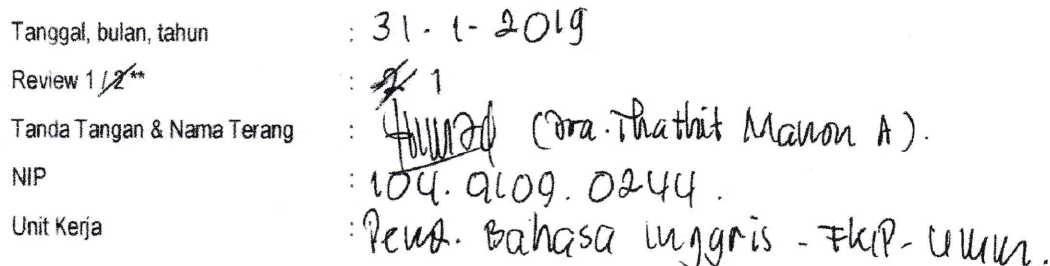 Tanggal, bulan, tahun : 31 - 1 - 2019
Review 1 / 2** : 2 1
Tanda Tangan & Nama Terang : (Dra. Thathit Manon A).
NIP : 104. 9109. 0244.
Unit Kerja : Pend. Bahasa Inggris - FKIP - UMM.